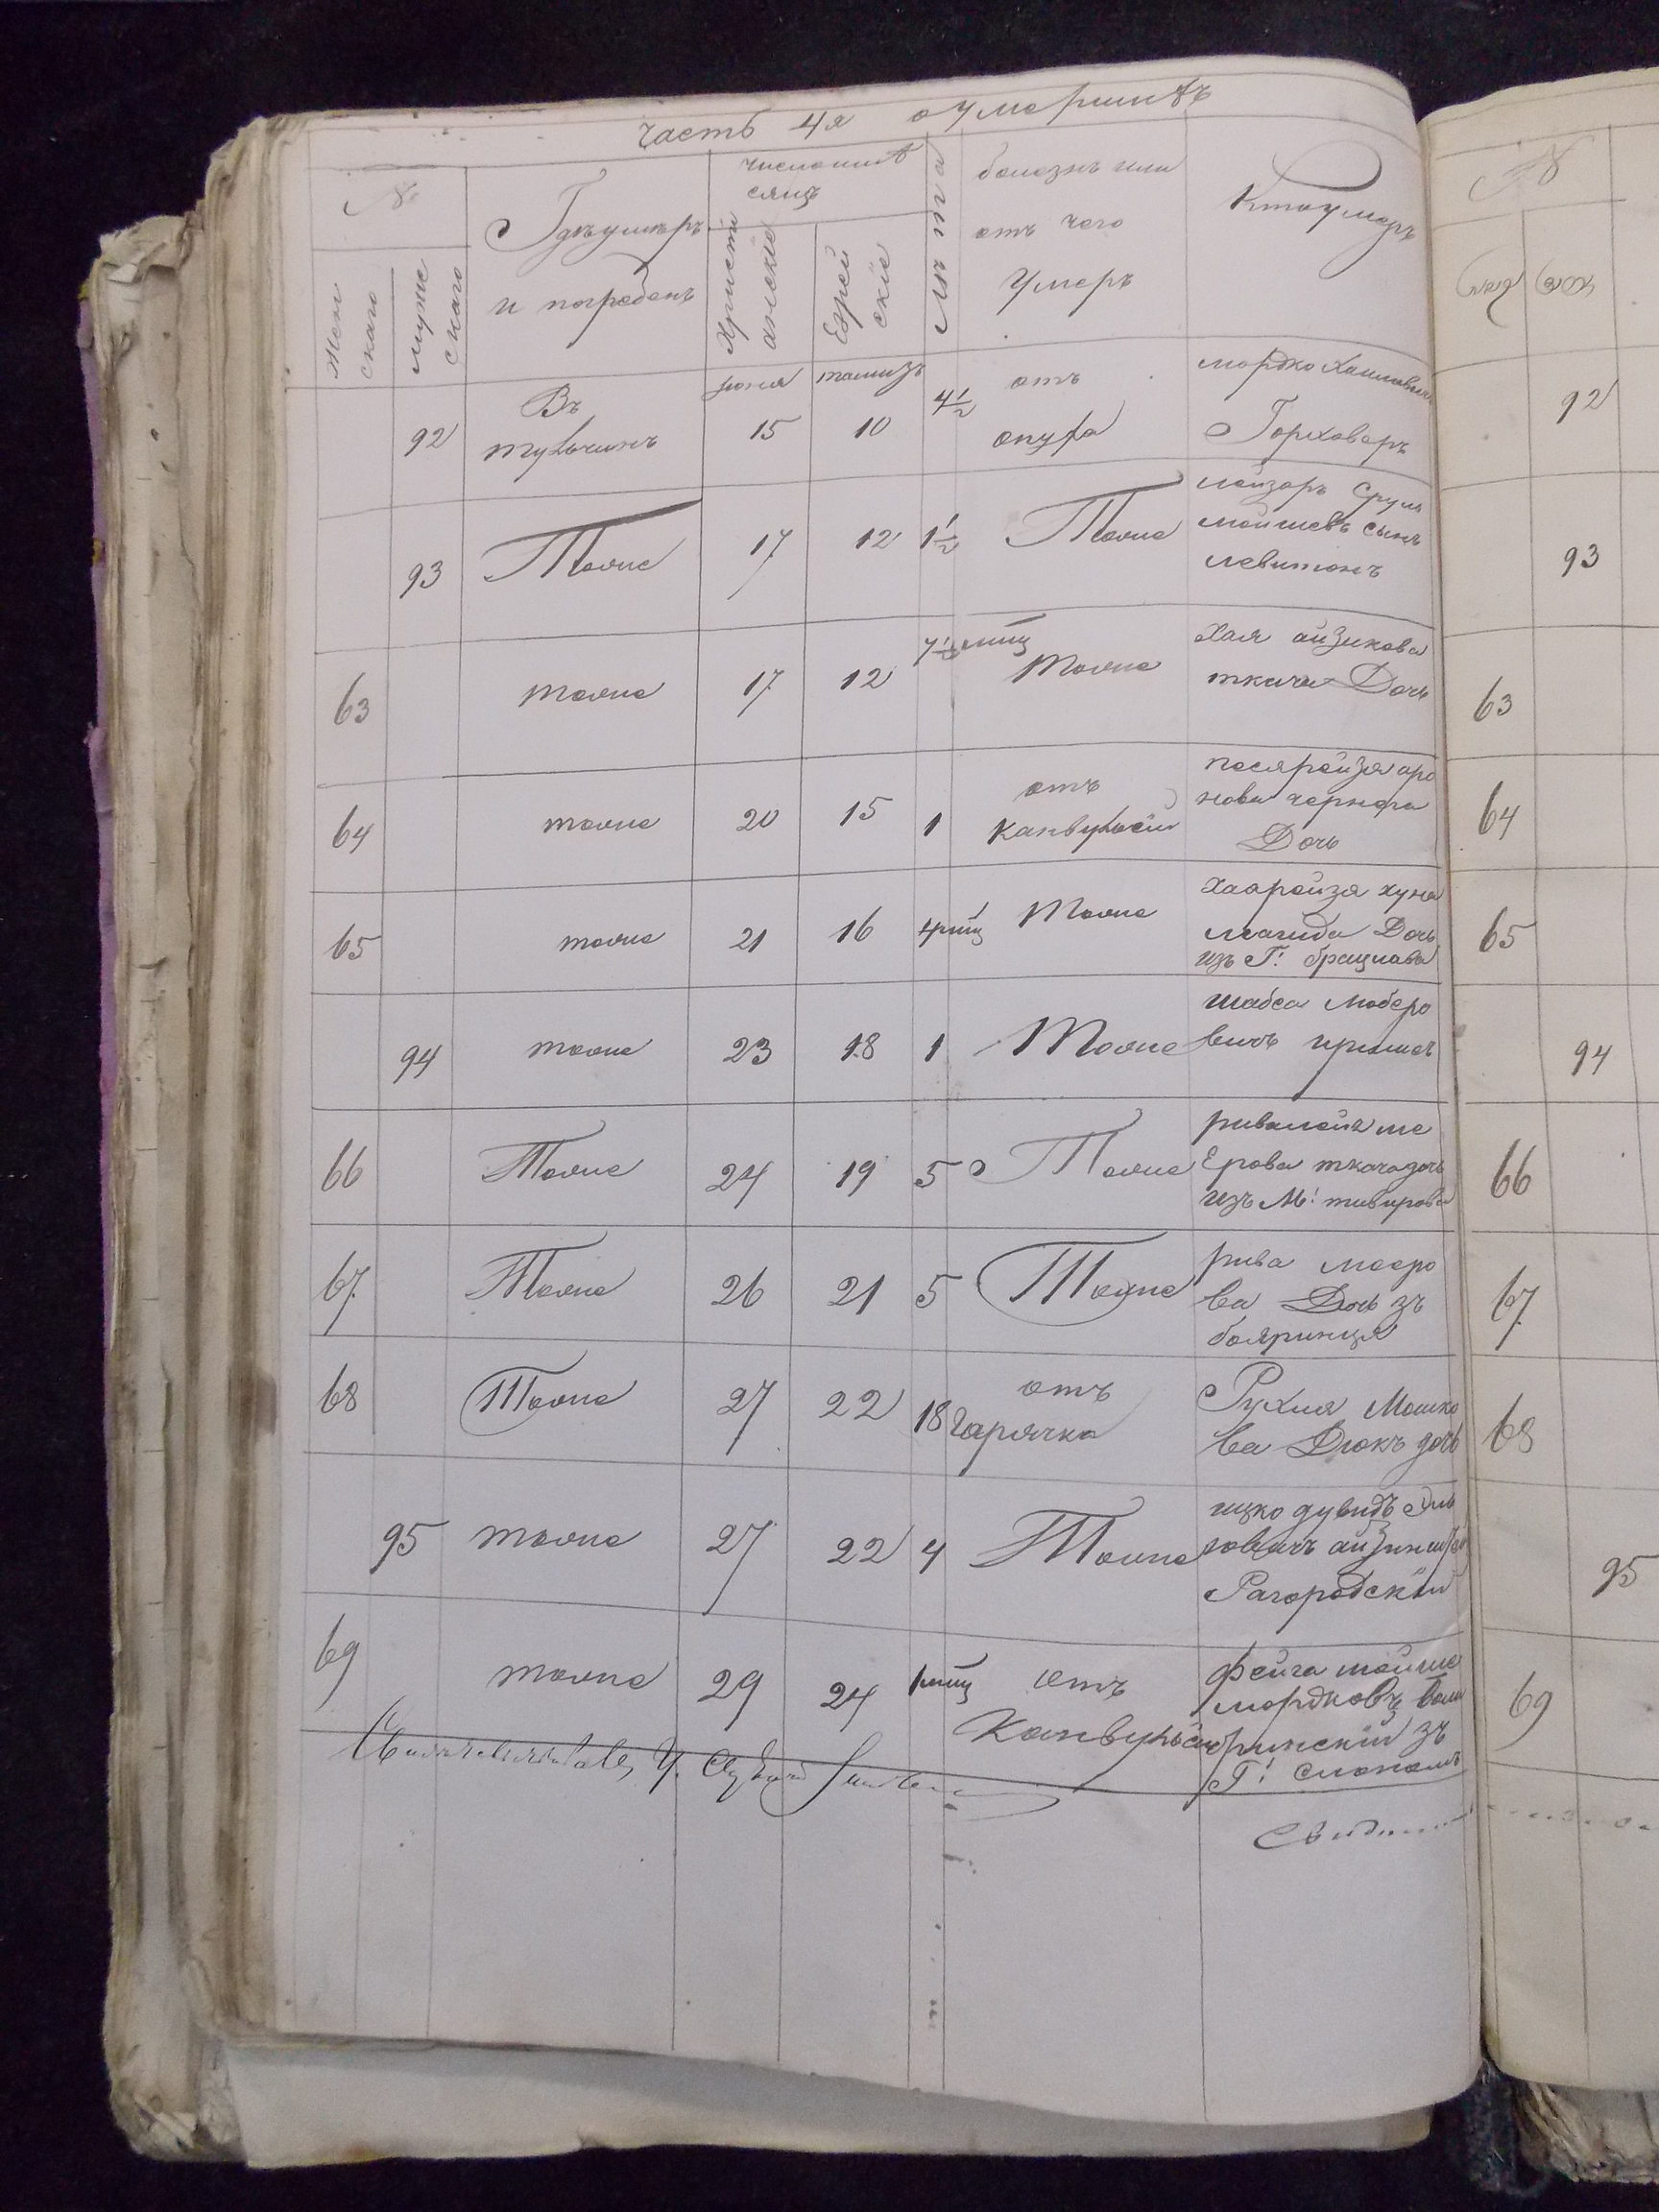 часть 4я о умершихъ
№
Женскаго
мужескаго
Где умеръ
и погребенъ
число и месяцъ
Христианские
Еврейские
Лета
болезнь или
отъ чего
Умеръ
Кто умеръ
июня тамизъ
92 Въ тульчинъ 15 10 4½ отъ опуха мордко Хаимовичъ
Горховеръ
93 Тоже 17 12 1½ Тоже лейзоръ Сруль
мойшевъ сынъ
левитонъ
63 тоже 17 12 тоже Хая айзикова
ткача Дочь
64 тоже 20 15 1 отъ Канвульсий песяройзя аро
нова чернега
Дочь
65 тоже 21 16 4 мц Тоже Хаяройзя хуна
магида Дочь
изъ Г: брацлава
94 тоже 23 18 1 Тоже шабса
вичъ
66 Тоже 24 19 5 Тоже ривалея ме
ерова ткача дочь
изъ М:
67 Тоже 26 21 5 Тоже рива мееро
ва Дочь зъ
бояринця
68 Тоже 27 22 18 отъ Гарячка Рухля Мошко
ва Дюкъ дочь
95 тоже 27 22 4 Тоже ицко дувидъ
Рагородский
69 тоже 29 24 1 мц отъ Канвульсий фейга
мордковъ
ринский зъ
Г:
N
92
93
63
64
65
94
66
67
68
95
69